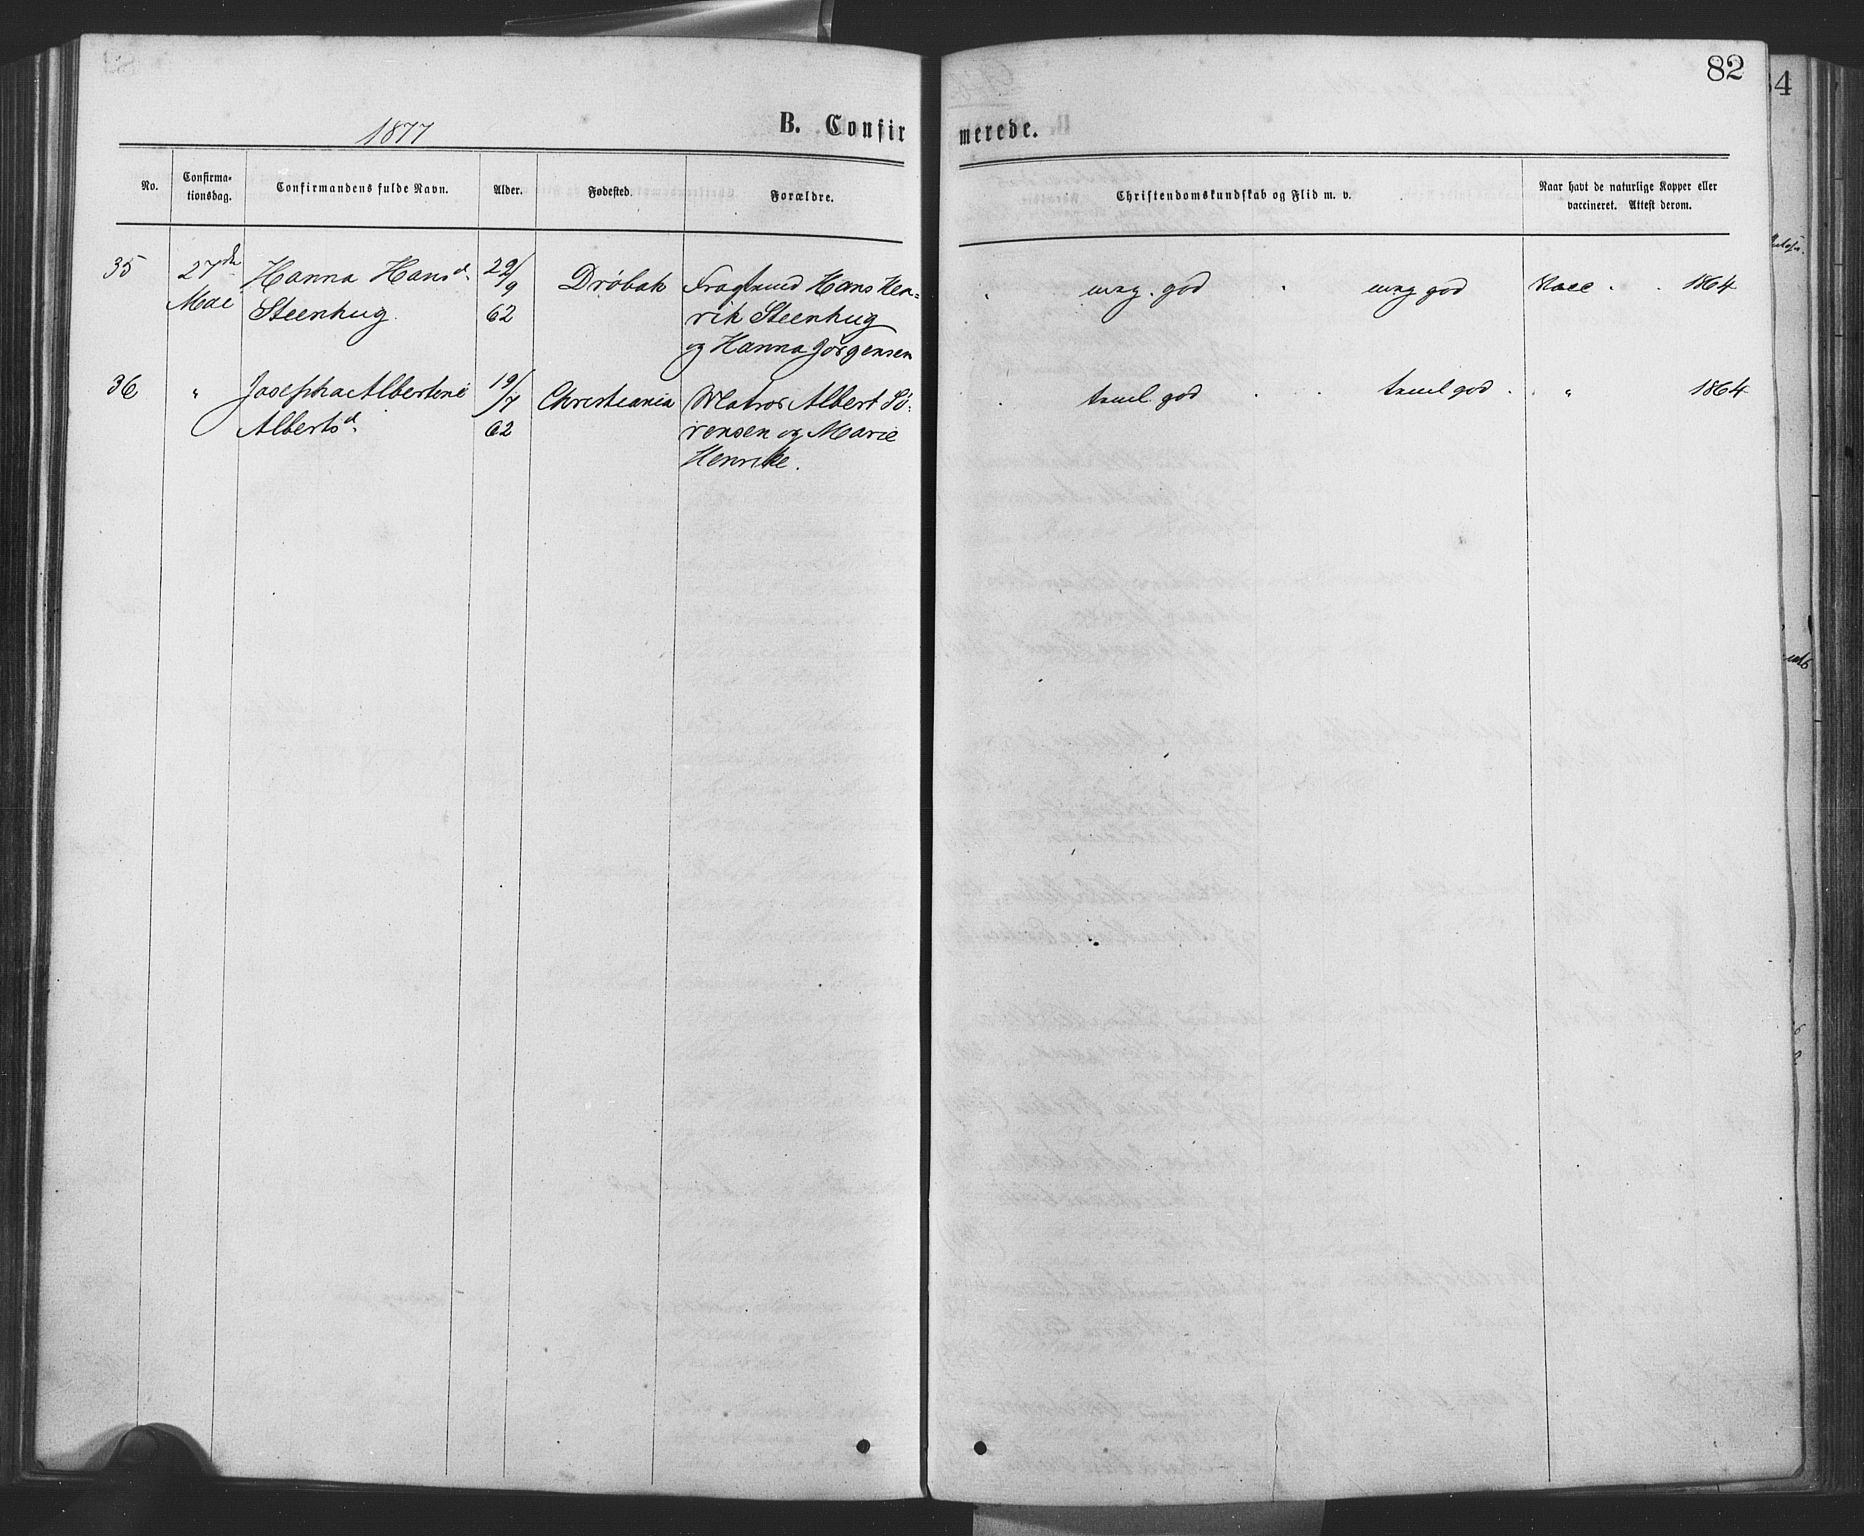 82
84
1877
B. Confir merede.
No. Confirma-
tionsdag. Confirmandens fulde Navn. Alder. Fødested. Forældre. Christendomskundskab og Flid m. v. Naar havt de naturlige Kopper eller
vaccineret. Attest derom.
35 27de Hanna Hansd. 29/9 Drøbak Hans Hen= meg. god meg god Vacc. 1864
Mai Steenhug. 62 rik Steenhug
og Hanna Jørgensen
36 " Josepha Albertine 19/7 Christiania Matros Albert Sø- temel. god temel god " 1864
Albertsd. 62 rensen og Marie
Henrike.